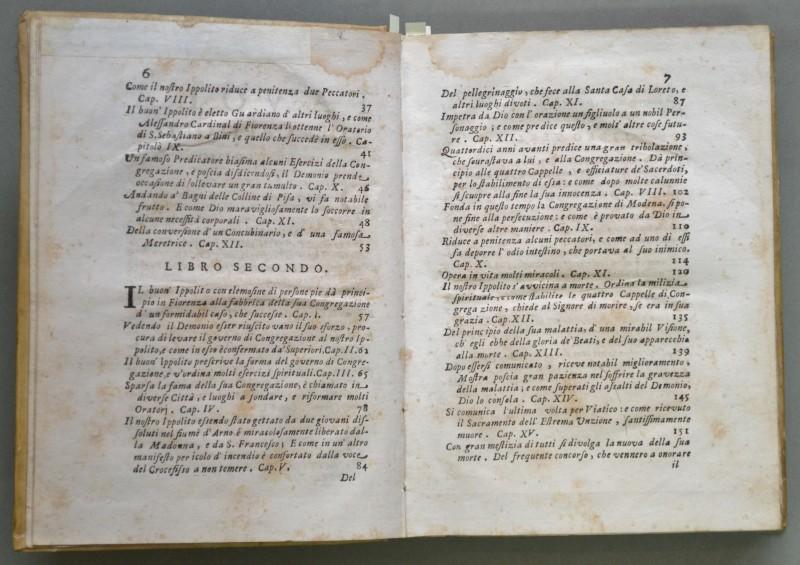 6
Come il nostro Ippolito riduce a penitenza due Peccatori.
Cap. VIII. 37
Il buon' Ippolito è eletto Guardiano d'altri luoghi, e come
Alessandro Cardinal di Fiorenza li ottenne l'Oratorio
di S. Sebastiano a Bini, e quello che succedè in esso. Ca-
pitolo IX. 41
Un famoso Predicatore biasima alcuni Esercizi della Con-
gregazione, e poscia disdicendosi, il Demonio prende
occasione di sollevare un gran tumulto. Cap. X. 46
Andando a' Bagni delle Colline di Pisa, vi fa notabile
frutto. E come Dio maravigliosamente lo soccorre in
alcune necessità corporali. Cap. XI. 48
Della conversione d'un Concubinario, e d' una famosa
Meretrice. Cap. XII. 53
LIBRO SECONDO.
IL buon' Ippolito con elemosine di persone pie dà princi-
pio in Fiorenza alla fabbrica della sua Congregazione
d' un formidabil caso, che successe. Cap. I. 57
Vedendo il Demonio esser riuscito vano il suo sforzo, pro-
cura di levare il governo di Congregazione al nostro Ip-
polito, e come in esso è confermato da' Superiori. Cap. II. 62
Il buon' Ippolito prescrive la forma del governo di Congre-
gazione, e v'ordina molti esercizi spirituali. Cap. III. 65
Sparsa la fama della sua Congregazione, è chiamato in
diverse Città, e luoghi a fondare, e riformare molti
Oratorj. Cap. IV. 78
Il nostro Ippolito essendo stato gettato da due giovani dis-
soluti nel fiume d'Arno è miracolosamente liberato dal-
la Madonna, e da S. Francesco; E come in un' altro
manifesto pericolo d'incendio è confortato dalla voce
del Crocefisso a non temere. Cap. V. 84
Del
7
Del pellegrinaggio, che fece alla Santa Casa di Loreto, e
altri luoghi divoti. Cap. XI. 87
Impetra da Dio con l'orazione un figliuolo a un nobil Per-
sonaggio, e come predice questo, e molt' altre cose futu-
re. Cap. XII. 93
Quattordici anni avanti predice una gran tribolazione,
che sourastava a lui, e alla Congregazione. Dà princi-
pio alle quattro Cappelle, e efficiature de' Sacerdoti,
per lo stabilimento di essa: e come dopo molte calunnie
si scuopre alla fine la sua innocenza. Cap. VIII. 102
Fonda in questo tempo la Congregazione di Modena. si po-
ne fine alla persecuzione: e come è provato da Dio in
diverse altre maniere. Cap. IX. 110
Riduce a penitenza alcuni peccatori, e come ad uno di essi
fa deporre l'odio intestino, che portava al suo inimico.
Cap. X. 114
Opera in vita molti miracoli. Cap. XI. 120
Il nostro Ippolito s'avvicina a morte. Ordina la milizia
spirituale, e come stabilite le quattro Cappelle di Con-
gregazione, chiede al Signore di morire, se era in sua
grazia. Cap. XII. 135
Del principio della sua malattia, d' una mirabil Visione,
ch' egli ebbe della gloria de' Beati, e del suo apparecchio
alla morte. Cap. XIII. 139
Dopo essersi comunicato, riceve notabil miglioramento.
Mostra poscia gran pazienza nel soffrire la gravezza
della malattia; e come superati gli assalti del Demonio,
Dio lo consola. Cap. XIV. 145
Si comunica l'ultima volta per Viatico: e come ricevuto
il Sacramento dell' Estrema Unzione, santissimamente
muore. Cap. XV. 151
Con gran mestizia di tutti si divolga la nuova della sua
morte. Del frequente concorso, che vennero a onorare
il